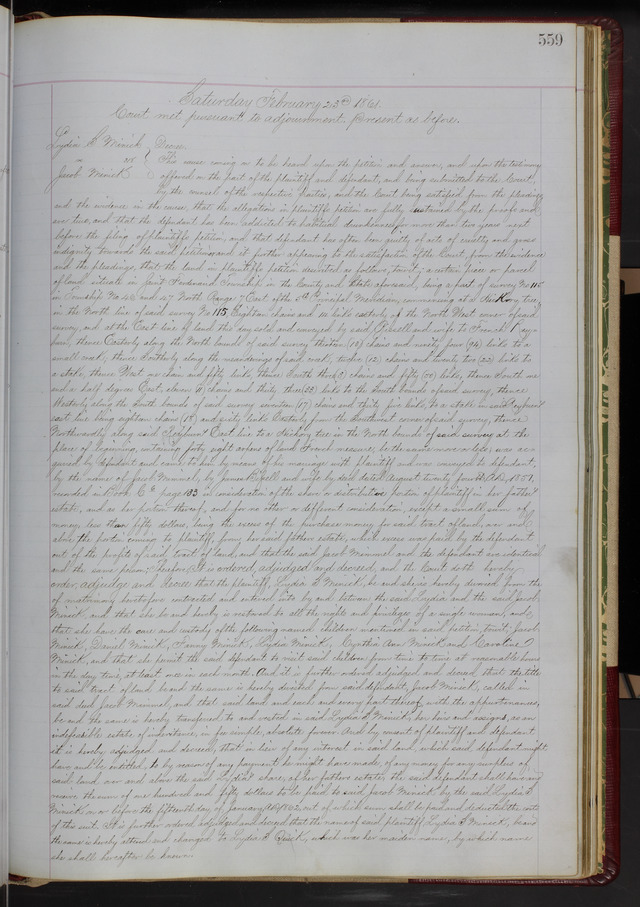 559
Saturday February 23d 1861.
Court met pursuant to adjournment. Present as before.
Lydia S Minick } Decree
vs The cause coming on to be heard upon the petition and answer, and upon the testimony
Jacob Minick offered on the part of the plaintiff and defendant, and being submitted to the Court,
by the counsel of the respective parties, and the Court being satisfied from the pleadings
and the evidence in the cause, that the allegations in plaintiffs petition are fully sustained by the proofs and
are true, and that the defendant has been addicted to habitual drunkenness, for more than two years next
before the filing of plaintiffs petition, and that defendant has often been guilty of acts of cruelty and gross
indignity towards the said petitioner, and it further appearing to the satisfaction of the Court, from the evidence
and the pleadings, that the land in plaintiffs petition described as follows, towit; a certain piece or parcel
of land situate in Saint Ferdinand Township in the County and State aforesaid, being a part of survey No 115
in Township No 46 and 47 North Range 7 East of the 5th principal Meridian, commencing at a Hickory tree,
in the North line of said survey No 115 Eighteen chains and six links easterly of the North West corner of said
survey, and at the East line of land this day sold and conveyed by said Russell and wife to French Ray-
burn, thence Easterly along the North bounds of said survey thirteen (13) chains and ninety four (94) links to a
small creek, thence Southerly along the meanderings of said creek, twelve (12) chains and twenty two (22) links to
a stake, thence West one chain and fifty links, thence South three (3) chains and fifty (50) links, thence South one
and a half degree East, eleven 11 chains and thirty three (33) links to the South bounds of said survey, thence
Westerly along the South bounds of said survey seventeen (17) chains and thirty five links, to a stake in said Rayburns
east line being eighteen chains (18) and sixty links Easterly from the Southwest corner of said survey, thence
Northwardly along said Rayburns East line to a Hickory tree in the North bounds of said survey at the
place of beginning, containing forty eight arpens of land French measure, be the same more or less; was ac-
quired by defendant and came to him by means of his marriage with plaintiff and was conveyed to defendant,
by the name of Jacob Mimmel, by James Russell and wife by deed dated August twenty four A.D. 1851,
recorded in Book C6 page 183 in consideration of the share or distributive portion of plaintiff in her father's
estate, and as her portion thereof, and for no other or different consideration, except a small sum of
money, less than fifty dollars, being the excess of the purchase money for said tract of land, over and
above the portion coming to plaintiff, from her said fathers estate, which excess was paid by the defendant
out of the profits of said tract of land, and that the said Jacob Mimmel and the defendant are identical
and the same person; Therefore It is ordered, adjudged and decreed, and the Court doth hereby
order, adjudge and decree that the plaintiff, Lydia S Minick, be and she is hereby divorced from the
of matrimony heretofore contracted and entered into by and between the said Lydia and the said Jacob
Minick, and that she be and hereby is restored to all the rights and privileges of a single woman, and
that she have the care and custody of the following named children mentioned in said petition, towit; Jacob
Minick, Daniel Minick, Fanny Minick, Lydia Minick, Cynthia Ann Minick and Caroline
Minick, and that she permit the said defendant to visit said children from time to time at reasonable hours
in the day time, at least once in each month. And it is further ordered adjudged and decreed, that the title
to said tract of land be and the same is hereby divested from said defendant, Jacob Minick, called in
said deed Jacob Mimmel, and that said land and each and every part thereof with the appurtenances,
be and the same is hereby transferred to and vested in said Lydia S Minick, her heirs and assigns, as an
indefeasible estate of inheritance, in fee simple, absolute forever. And by consent of plaintiff and defendant
it is hereby adjudged and decreed, that in lieu of any interest in said land, which said defendant might
have and be entitled to by reason of any payment he might have made, of any money for any surplus of
said land over and above the said Lydia's share, of her fathers estate, the said defendant shall have and
receive the sum of one hundred and fifty dollars to be paid to said Jacob Minick by the said Lydia S
Minick on or before the fifteenth day of January AD 1862, out of which sum, shall be paid and deducted the costs
of this suit. It is further ordered adjudged and decreed that the name of said plaintiff, Lydia S Minick, be and
the same is hereby altered and changed to Lydia S , which was her maiden name, by which name
she shall hereafter be known.